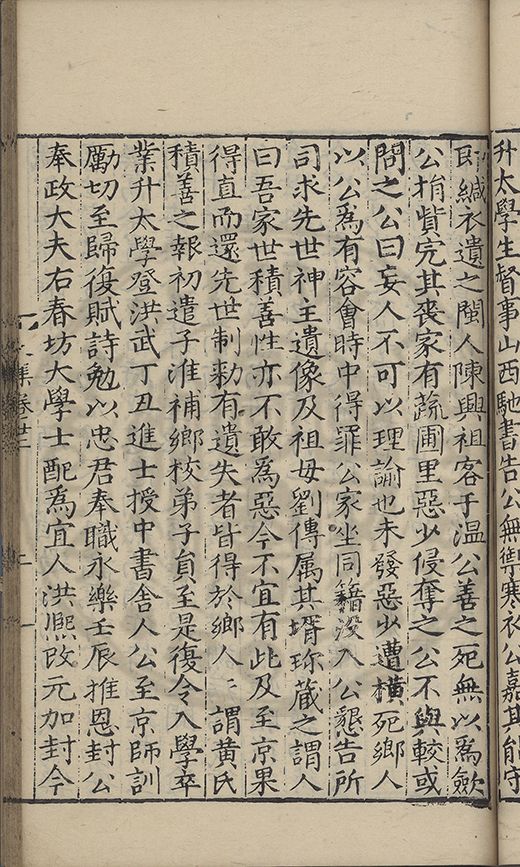 升太學生督事山西馳書告公無禦寒衣公嘉其能守
即緘衣遺之閩人陳興祖客于溫公善之死無以為歛
公捐貲完其喪家有蔬圃里惡少侵奪之公不與較或
問之公曰妄人不可以理諭也未發惡少遭橫死鄉人
以公為有容會時中得罪公家坐同籍沒入公懇告所
司求先世神主遺像及祖母劉傳属其壻珎蔵之謂人
曰吾家世積善性亦不敢為惡今不宜有此及至京果
得直而還先世制勅有遺失者皆得於鄉人〻謂黄氏
積善之報初遣子淮補鄉校弟子員至是復令入學卒
業升太學登洪武丁丑進士授中書舍人公至京師訓
勵切至歸復賦詩勉以忠君奉職永樂壬辰推恩封公
奉政大夫右春坊大學士配為宜人洪熈改元加封今
集卷廿二